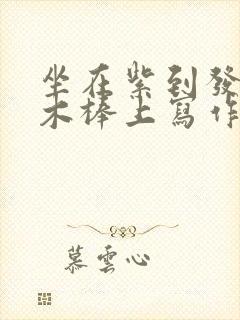 坐在紫到發
木棒上寫作
慕雲心